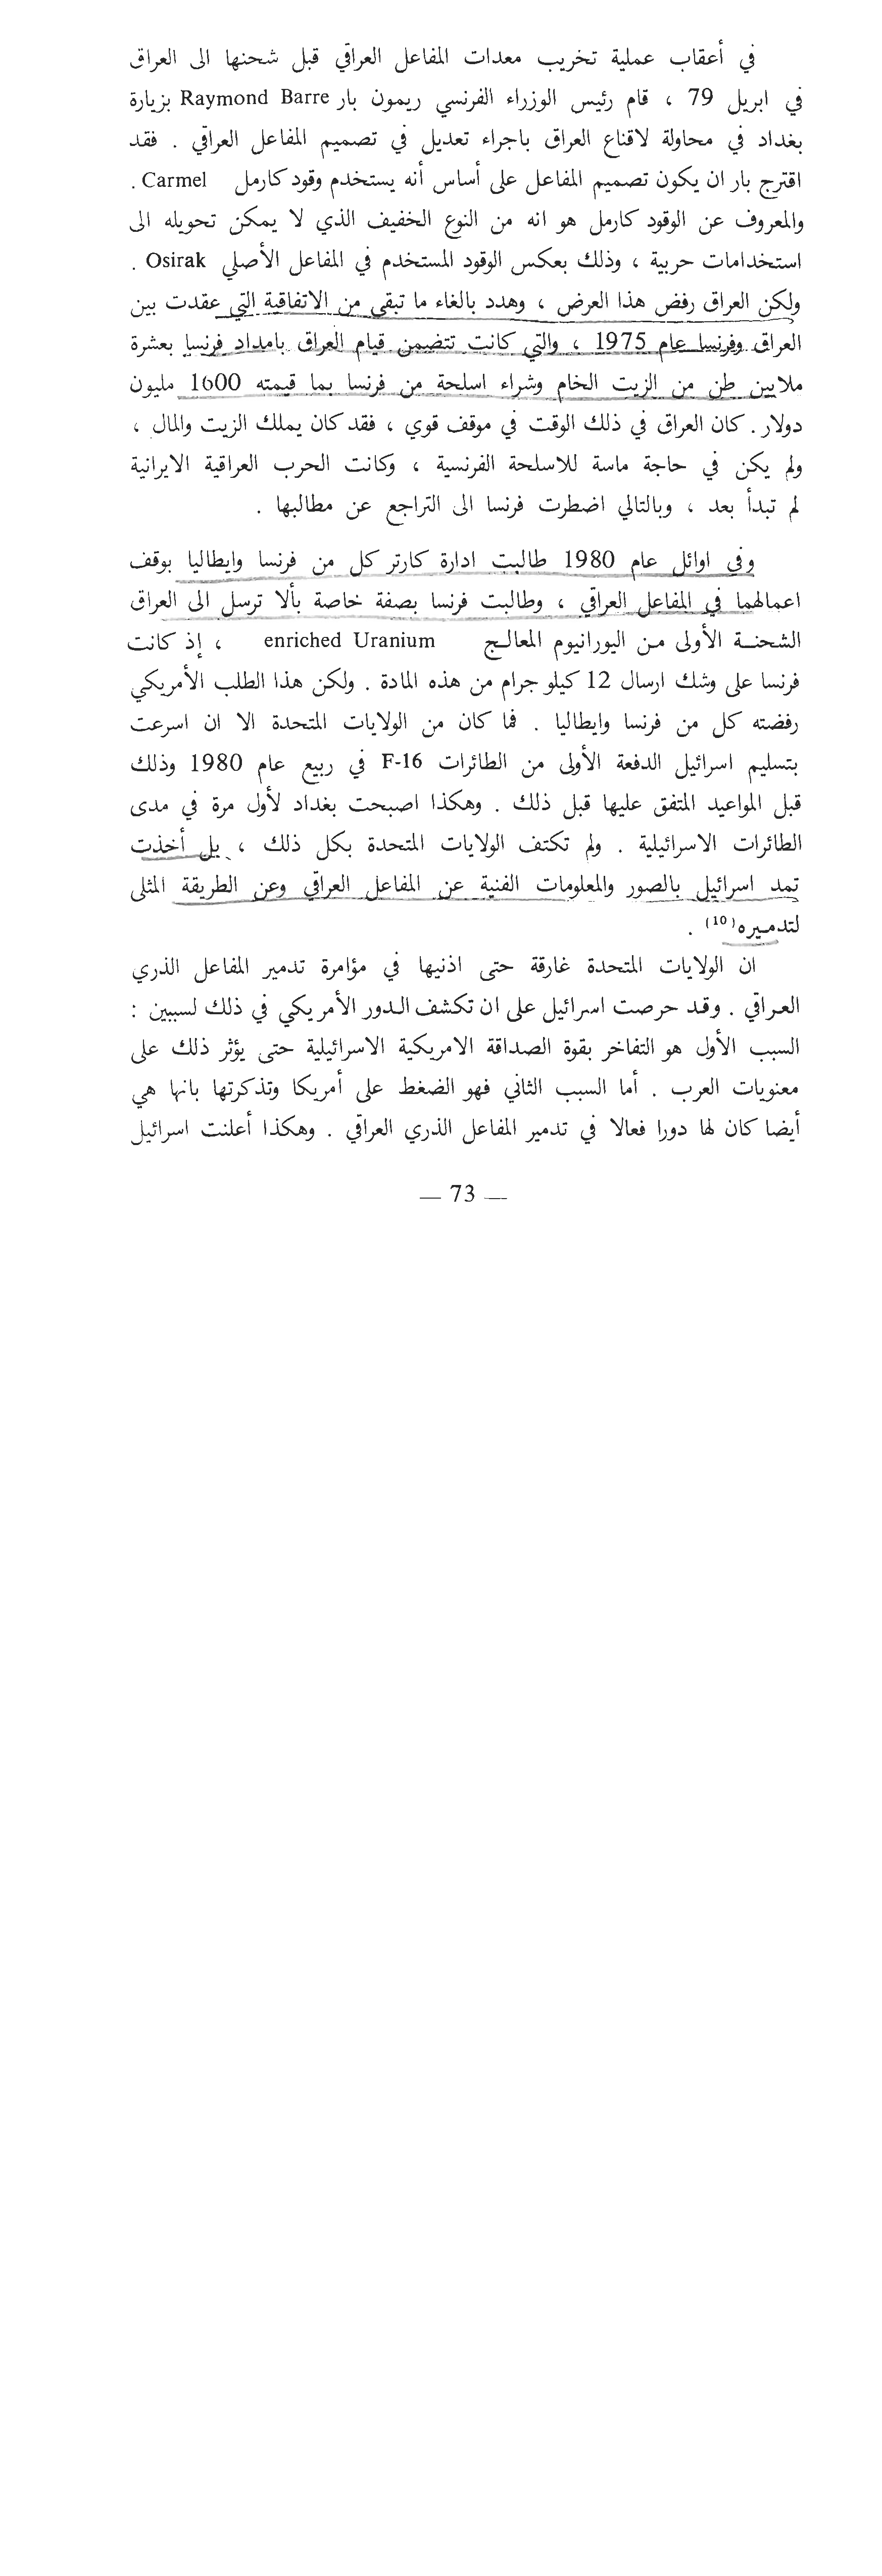 في أعقاب عملية تخريب معدات المفاعل العراقي قبل شحنها الى العراق
في ابريل 79 ، قام رئيس الوزراء الفرنسي ريمون بار Raymond Barre بزيارة
بغداد في محاولة لاقناع العراق باجراء تعديل في تصميم المفاعل العراقي . فقد
اقترح بار ان يكون تصميم المفاعل على أساس أنه يستخدم وقود كارمل Carmel .
والمعروف عن الوقود كارمل هو انه من النوع الخفيف الذي لا يمكن تحويله الى
استخدامات حربية ، وذلك بعكس الوقود المستخدم في المفاعل الأصلي Osirak .
ولكن العراق رفض هذا العرض ، وهدد بالغاء ما تبقى من الاتفاقية التي عقدت بين
العراق وفرنسا عام 1975 ، والتي كانت تتضمن قيام العراق بامداد فرنسا بعشرة
ملايين طن من الزيت الخام وشراء اسلحة من فرنسا بما قيمته 1600 مليون
دولار . كان العراق في ذلك الوقت في موقف قوي ، فقد كان يملك الزيت والمال ،
ولم يكن في حاجة ماسة للاسلحة الفرنسية ، وكانت الحرب العراقية الايرانية
لم تبدأ بعد ، وبالتالي اضطرت فرنسا الى التراجع عن مطالبها .
وفي اوائل عام 1980 طالبت ادارة كارتر كل من فرنسا وايطاليا بوقف
اعمالهما في المفاعل العراقي ، وطالبت فرنسا بصفة خاصة بألا ترسل الى العراق
الشحنـة الأولى من اليورانيوم المعالـج enriched Uranium ، إذ كانت
فرنسا على وشك ارسال 12 كيلو جرام من هذه المادة . ولكن هذا الطلب الأمريكي
رفضته كل من فرنسا وايطاليا . فما كان من الولايات المتحدة الا ان اسرعت
بتسليم اسرائيل الدفعة الأولى من الطائرات F-16 في ربيع عام 1980 وذلك
قبل المواعيد المتفق عليها قبل ذلك . وهكذا اصبحت بغداد لأول مرة في مدى
الطائرات الاسرائيلية . ولم تكتف الولايات المتحدة بكل ذلك ، بل أخذت
تمد اسرائيل بالصور والمعلومات الفنية عن المفاعل العراقي وعن الطريقة المثلى
لتدميره (10) .
ان الولايات المتحدة غارقة حتى اذنيها في مؤامرة تدمير المفاعل الذري
العراقي . وقد حرصت اسرائيل على ان تكشف الدور الأمريكي في ذلك لسببين :
السبب الأول هو التفاخر بقوة الصداقة الامريكية الاسرائيلية حتى يؤثر ذلك على
معنويات العرب . أما السبب الثاني فهو الضغط على أمريكا وتذكرتها بانها هي
أيضا كان لها دورا فعالا في تدمير المفاعل الذري العراقي . وهكذا أعلنت اسرائيل
— 73 —